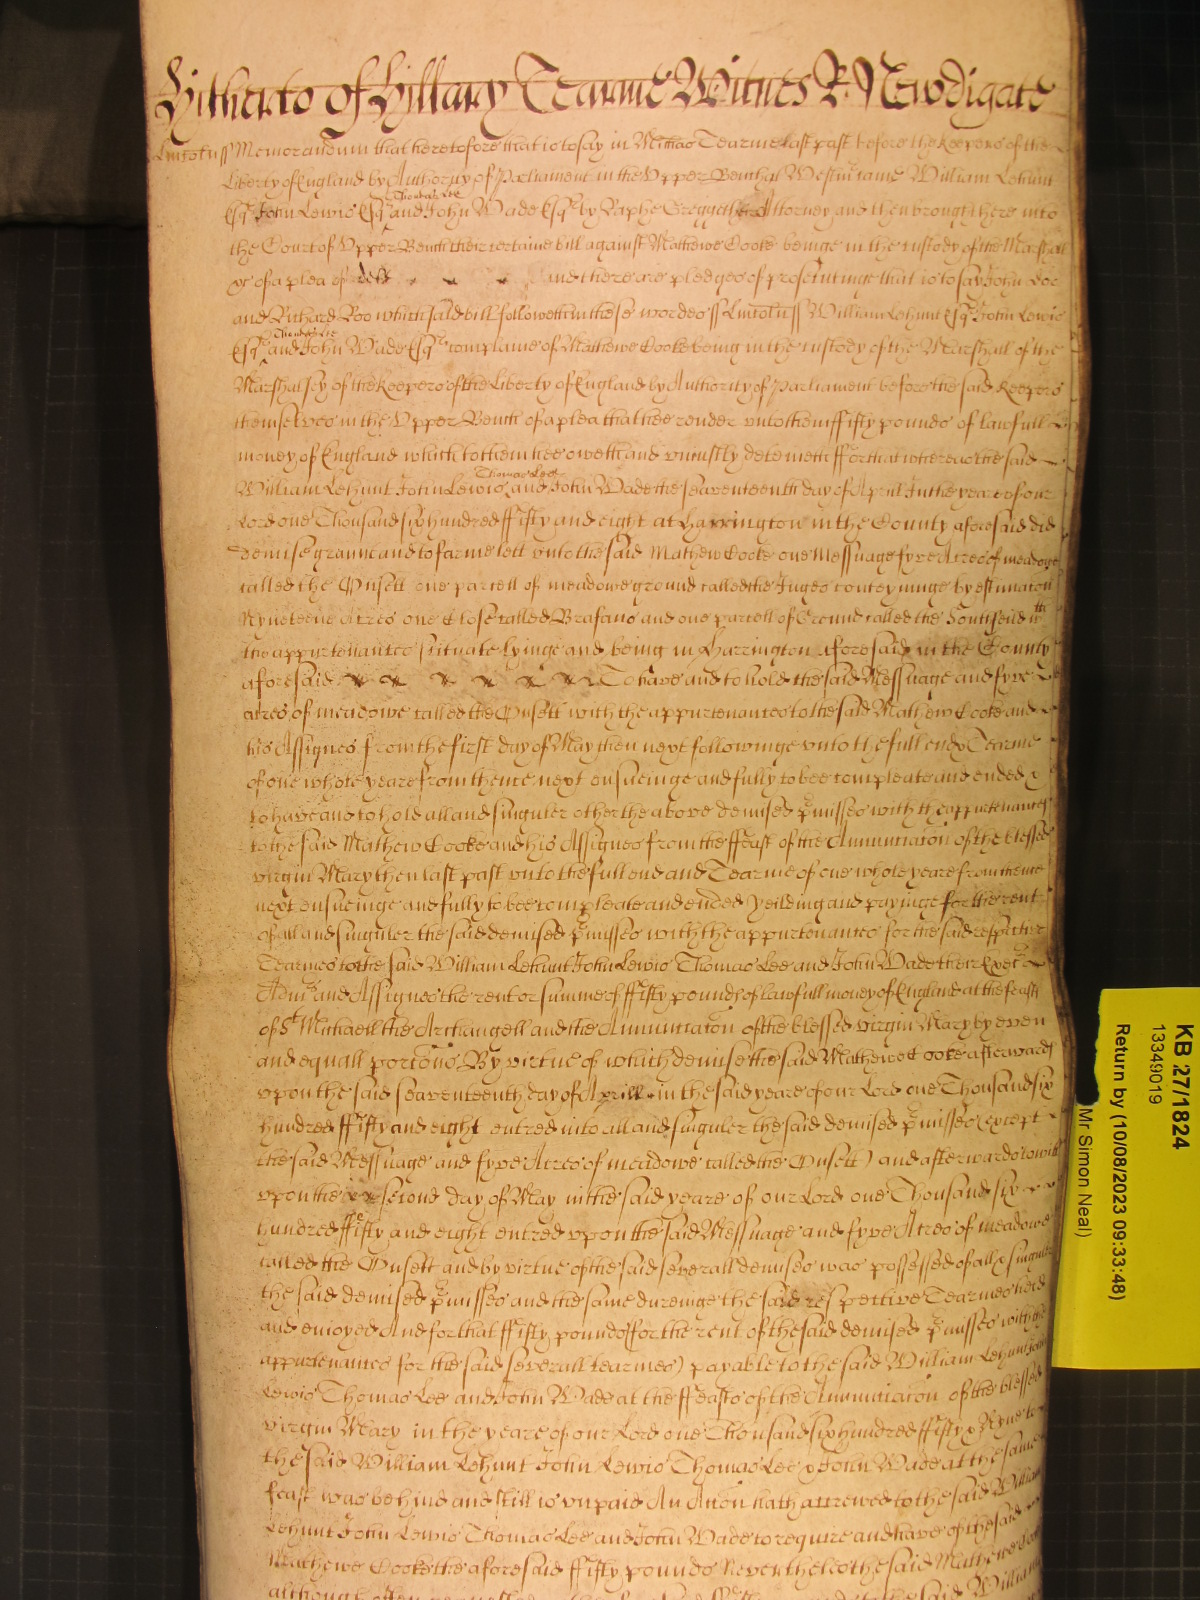 Hitherto of Hillary Tearme Witnes R: Newdigate
Lincoln ss Memorandum that heretofore that is to say in Michas Tearme last past before the Keepers of the
Liberty of England by Authority of Parliament in the Upper Bench at Westm came William Lehunt
Thomas Lee
Esqr John Lewis Esqr and John Wade Esqr by Raphe Attorney and then brought here into
the Court of Upper Bench their certaine bill against Mathewe Cooke beinge in the custody of the Marshal
&c of a plea of debt and there are pledges of prosecutinge that is to say John Doe
and Richard Roo which said bill followeth in these wordes ss Lincoln ss William Lehunt Esqr John Lewis
Thomas Lee
Esqr and John Wade Esqr complaine of Mathewe Cooke being in the custody of the Marshall of the
Marshalsey of the Keepers of the Liberty of England by Authority of Parliament before the said Keepers
themselves in the Upper Bench of a plea that hee render unto them ffifty pounds of lawfull
money of England which to them hee oweth and uniustly deteineth ffor that whereas the said
Thomas Lee
William Lehunt John Lewis and John Wade the seaventeenth day of Aprill In the yeare of our
Lord one Thousand six hundred ffifty and eight at Harrington in the County aforesaid did
demise graunt and to farme lett unto the said Mathew Cooke one Messuage fyve Acres of meadowe
called the Onsett one parcell of meadowe ground called the Inges conteyninge by estimacon
Nyneteene Acres one Close called Brasans and one parcell of Ground called the Southfeild wth
the appurtenances scituate lyinge and being in Harrington aforesaid in the County
aforesaid To have and to hold the said Messuage and fyve
acres of meadowe called the Onsett with the appurtenances to the said Mathew Cooke and
his Assignes from the first day of May then next followinge unto the full end & Tearme
of one whole yeare from thence next ensueinge and fully to bee compleate and ended &
to have and to hold all and singuler other the above demised pmisses with th appurtenances
to the said Mathew Cooke and his Assignes from the ffeast of the Annunciacon of the blessed
virgin Mary then last past unto the full end and Tearme of one whole yeare from thence
next ensueinge and fully to bee compleate and ended Yeilding and payinge for the rent
of all and singuler the said demised pmisses with the appurtenances for the said respective
Tearmes to the said William Lehunt John Lewis Thomas Lee and John Wade their Execrs
Admrs and Assignes the rent or summe of ffifty pounds of lawfull money of England at the feasts
of St Michaell the Archangell and the Annunciacon of the blessed virgin Mary by even
and equall porcons By virtue of which demise the said Mathewe Cooke afterwards
upon the said seaventeenth day of Aprill in the said yeare of our Lord one Thousand six
hundred ffifty and eight entred into all and singuler the said demised pmisses (except
the said Messuage and fyve Acres of meadowe called the Onsett) and afterwards towit
upon the second day of May in the said yeare of our Lord one Thousand six
hundred ffifty and eight entred upon the said Messuage and fyve Acres of meadowe
called the Onsett and by virtue of the said severall demises was possessed of all & singuler
the said demised pmisses and the same dureinge the said respective Tearmes held
and enioyed And for that ffifty pounds (for the rent of the said demised pmisses with the
appurtenances for the said severall tearmes) payable to the said William Lehunt John
Lewis Thomas Lee and John Wade at the ffeasts of the Annunciacon of the blessed
virgin Mary in the yeare of our Lord one Thousand six hundred ffifty & Nyne to
the said William Lehunt John Lewis Thomas Lee & John Wade at the same
feast was behind and still is unpaid An Accon hath accrewed to the said William
Lehunt John Lewis Thomas Lee and John Wade to require and have of the said
Mathewe Cooke the aforesaid ffifty pounds Neverthelesse the said Mathewe
although often to the said William
KB 27/1824
13349019
Return by (10/08/2023 09:33:48)
Mr Simon Neal)